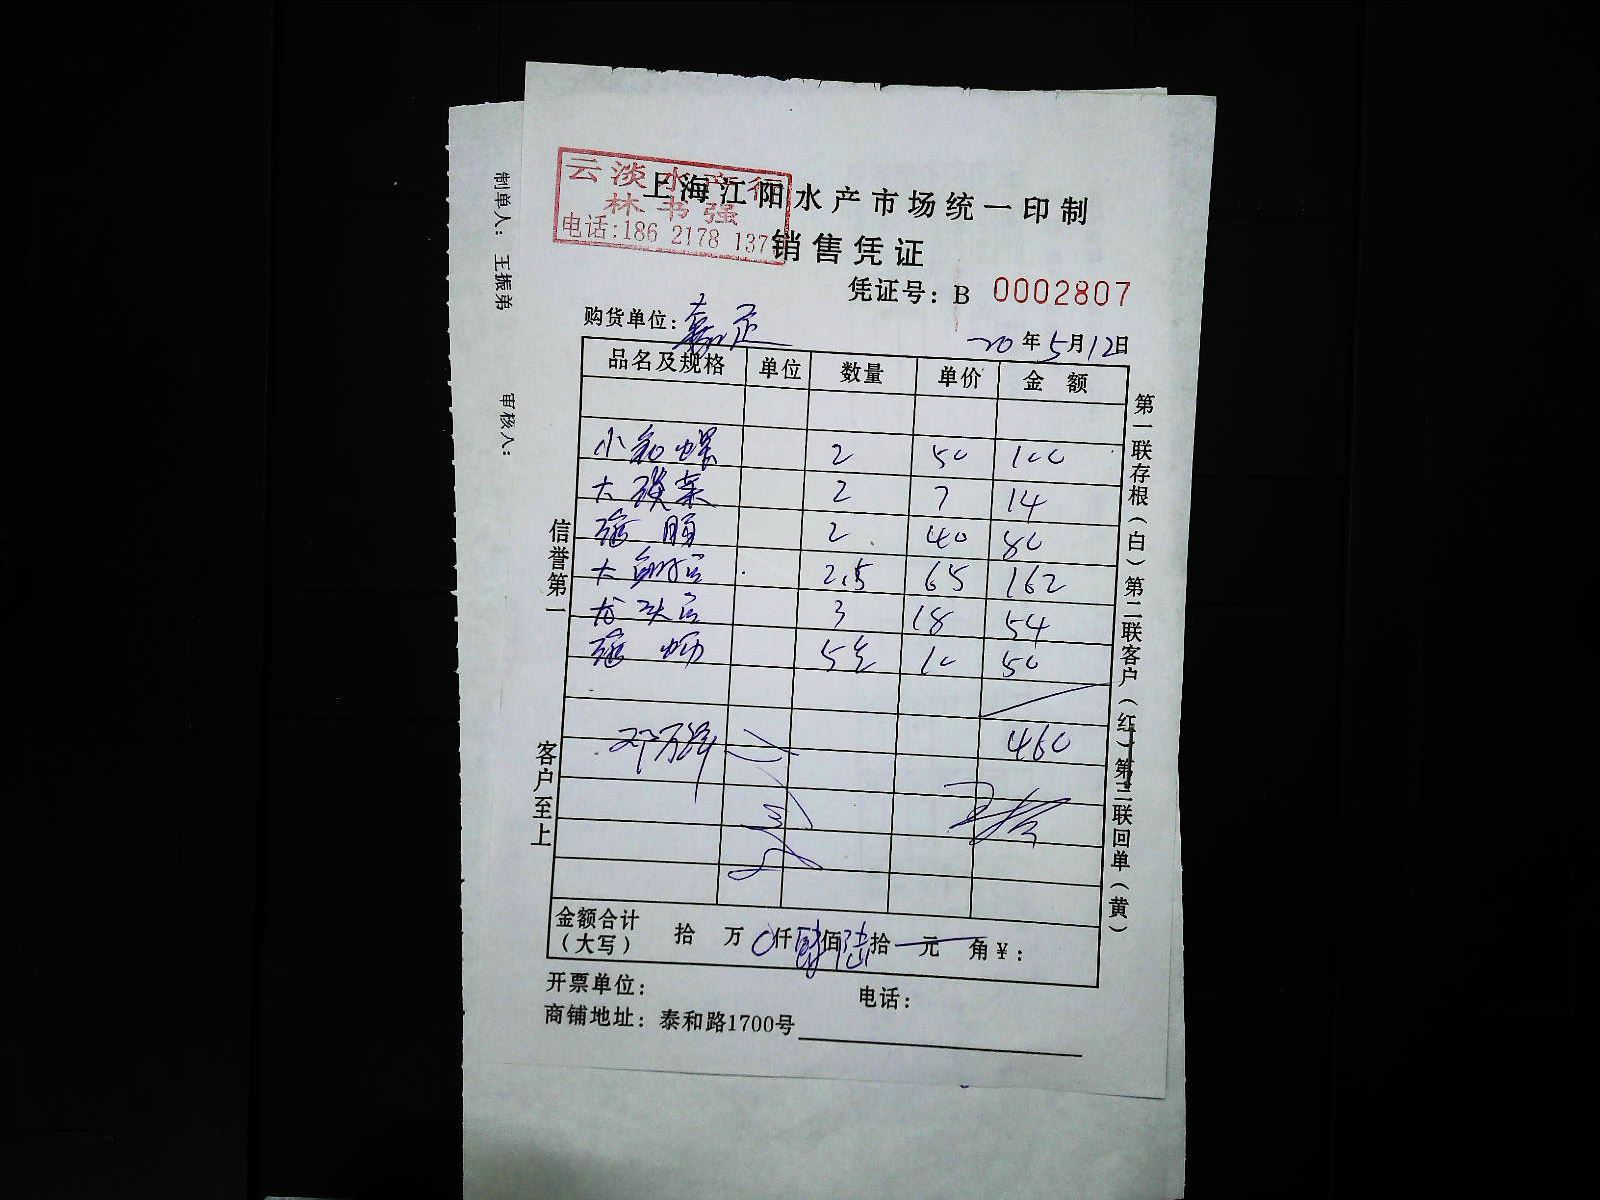 云淡水产行
林书强
电话:186 2178 137
上海江阳水产市场统一印制
销售凭证
凭证号: B 0002807
购货单位:
20年5月12日
品名及规格 单位 数量 单价 金额
小 螺 2 50 100
大 菜 2 7 14
2 40 80
大 2.5 65 162
龙头 3 18 54
5 10 50
460
邓万
金额合计
(大写) 拾 万 0仟肆佰陆拾 元 角¥:
开票单位: 电话:
商铺地址: 泰和路1700号
信誉第一
客户至上
第一联存根(白)第二联客户(红)第三联回单(黄)
制单人: 王振弟
审核人: